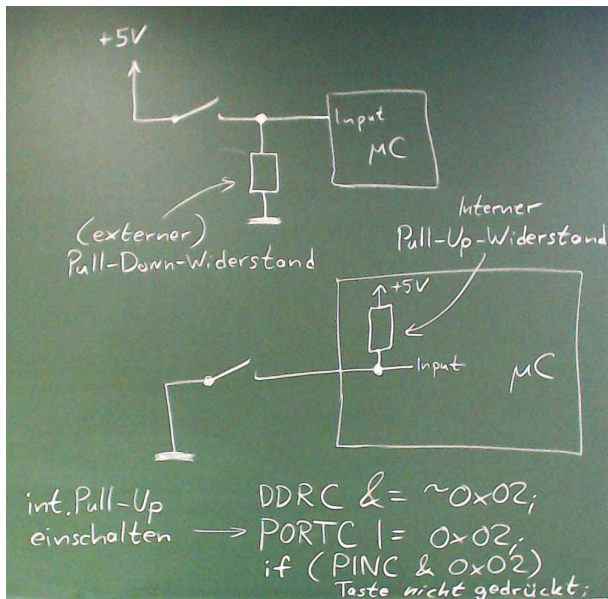 +5V
Input
μC
(externer)
Pull-Down-Widerstand
Interner
Pull-Up-Widerstand
+5V
Input
μC
int. Pull-Up
einschalten
DDRC &= ~0x02;
PORTC |= 0x02;
if (PINC & 0x02)
Taste nicht gedrückt;